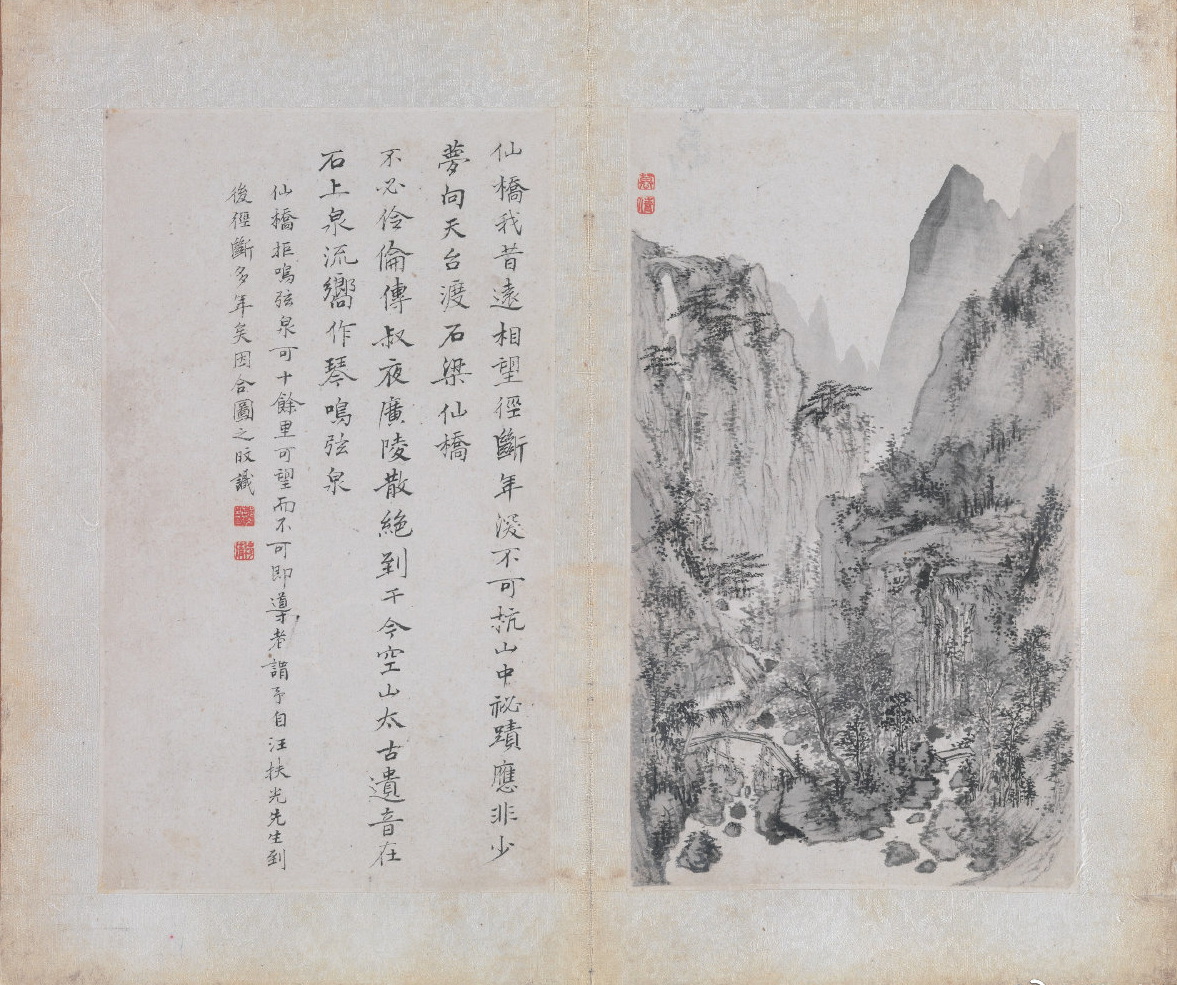 仙橋我昔遠相望徑斷年深不可杭山中祕蹟應非少
夢向天台渡石梁仙橋
不必伶倫傳叔夜廣陵散絶到于今空山太古遺音在
石上泉流嚮作琴鳴弦泉
仙橋拒鳴弦泉可十餘里可望而不可即導者謂予自汪扶光先生到
後徑斷多年矣因合圖之旼識